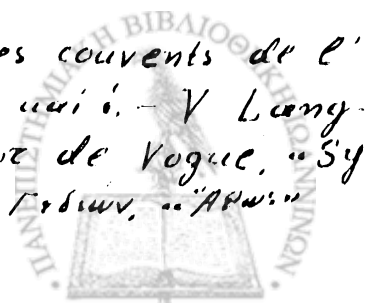 es couvents de l'
V Lang-
de Vogüe, "Sy
Γεδεών, "Άθως"
ΠΑΝΕΠΙΣΤΗΜΙΑΚΗ ΒΙΒΛΙΟΘΗΚΗ ΙΩΑΝΝΙΝΩΝ